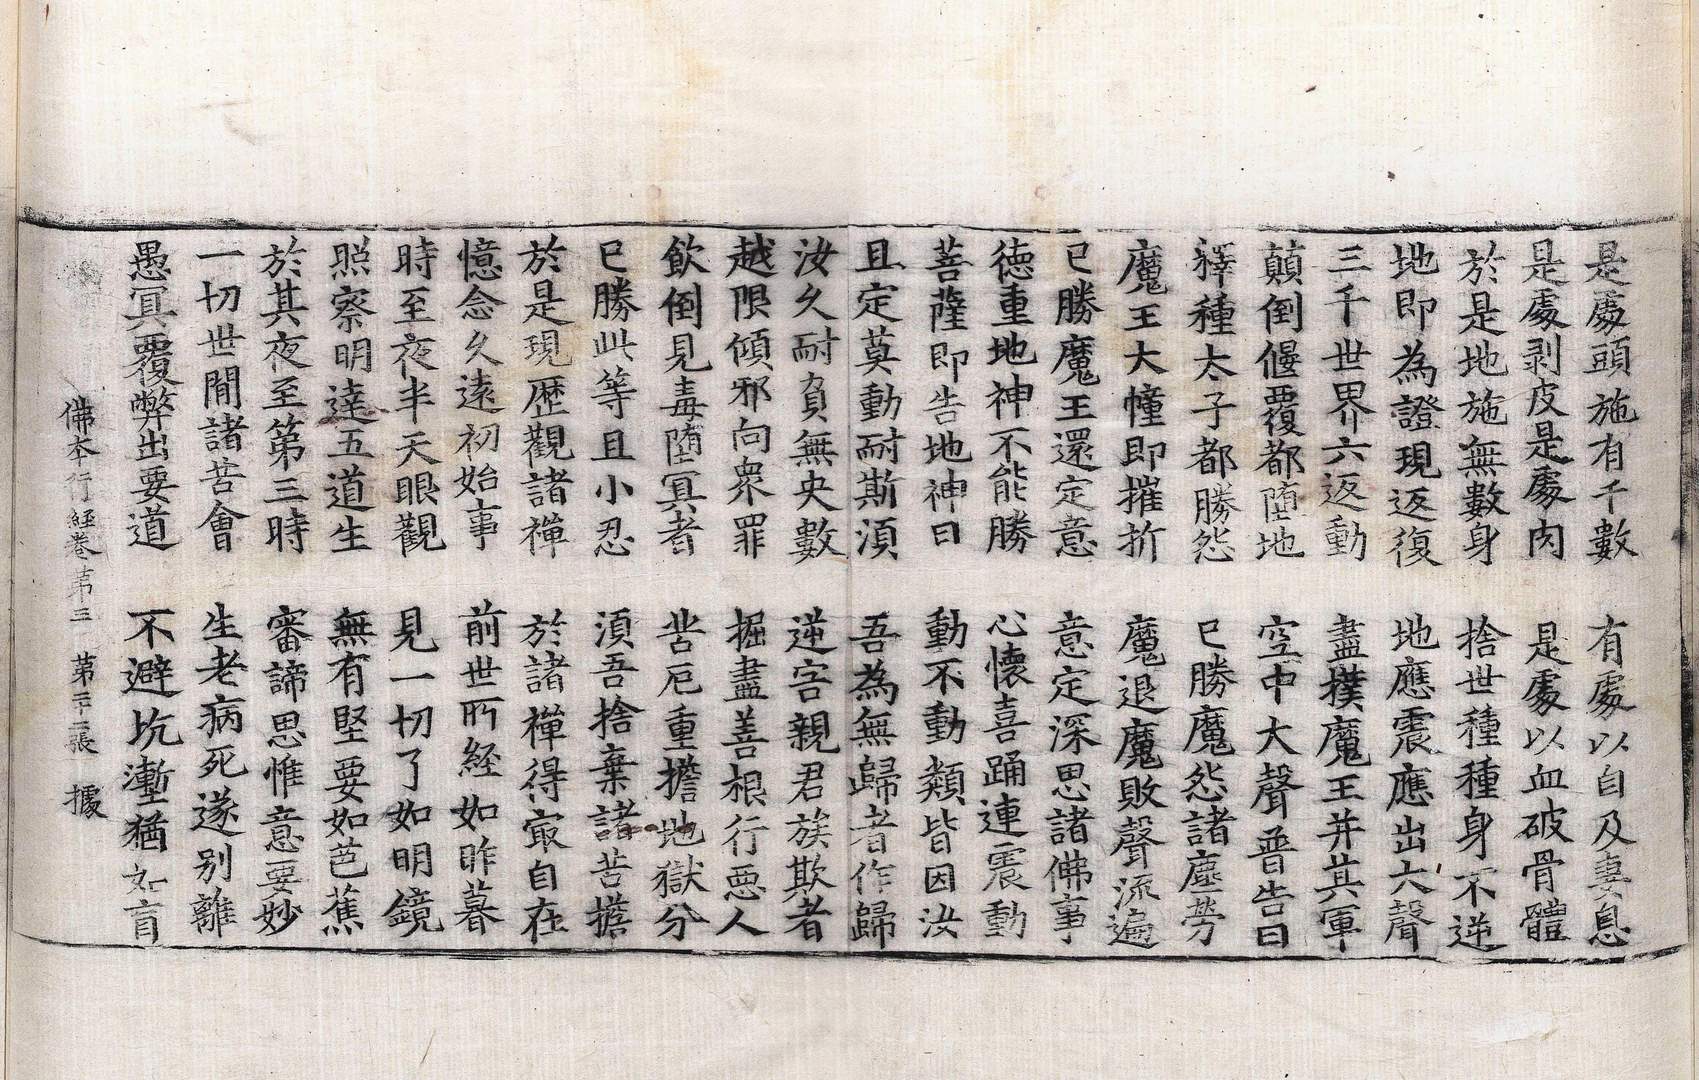 是處頭施有千數　有處以自及妻息
是處剥皮是處肉　是處以血破骨體
於是地施無數身　捨世種種身不逆
地即為證現返復　地應震應出大聲
三千世界六返動　盡撲魔王并其軍
顛倒偃覆都墮地　空中大聲普告曰
釋種太子都勝怨　已勝魔怨諸塵勞
魔王大幢即摧折　魔退魔敗聲流遍
已勝魔王還定意　意定深思諸佛事
德重地神不能勝　心懷喜踊連震動
菩薩即告地神曰　動不動類皆因汝
且定莫動耐斯須　吾為無歸者作歸
汝久耐負無央數　逆害親君族欺者
越限傾邪向衆罪　掘盡善根行惡人
飲倒見毒墮冥者　苦厄重擔地獄分
已勝此等且小忍　須吾捨棄諸苦擔
於是現歷觀諸禪　於諸禪得㝡自在
憶念久遠初始事　前世所經如昨暮
時至夜半天眼觀　見一切了如明鏡
照察明達五道生　無有堅要如芭蕉
於其夜至第三時　審諦思惟意要妙
一切世間諸苦會　生老病死遂别離
愚冥覆弊出要道　不避坑壍猶如盲
佛本行經卷第三　第二十二張　據